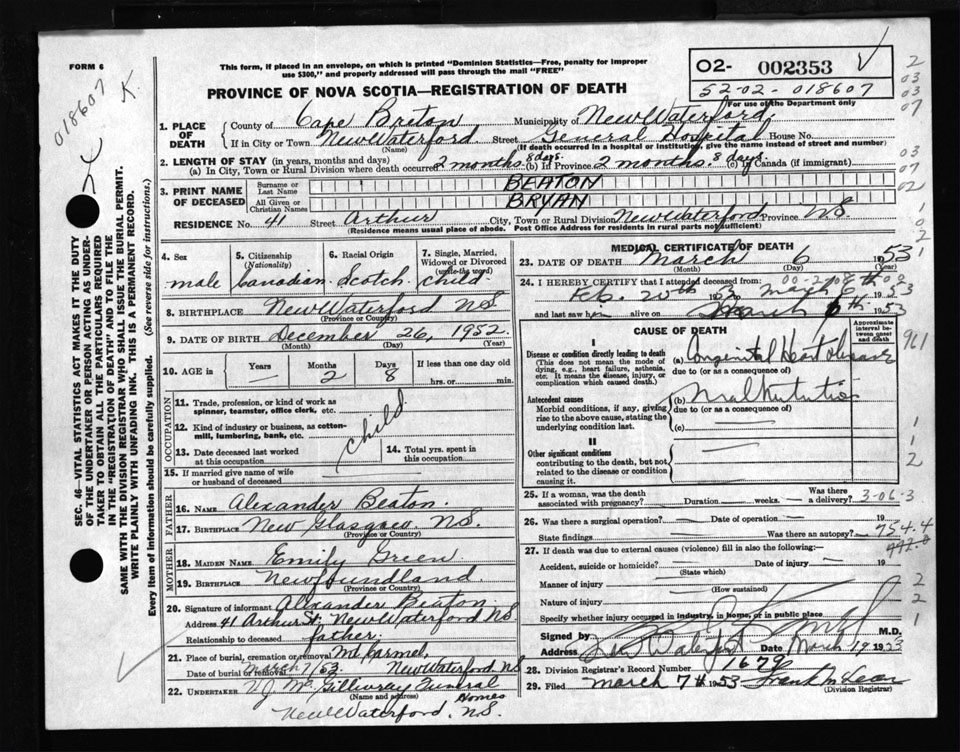 FORM 6
This form, if placed in an envelope, on which is printed "Dominion Statistics—Free, penalty for improper
use $300," and properly addressed will pass through the mail "FREE"
PROVINCE OF NOVA SCOTIA—REGISTRATION OF DEATH
O2- 002353
52-02-018607
For use of the Department only
018607
K
1. PLACE OF DEATH
County of Cape Breton Municipality of New Waterford
If in City or Town New Waterford Street General Hospital House No.
(Name) (If death occurred in a hospital or institution, give the name instead of street and number)
2. LENGTH OF STAY (in years, months and days)
(a) In City, Town or Rural Division where death occurred 2 months 8 days. (b) In Province 2 months. 8 days. (c) In Canada (if immigrant)
3. PRINT NAME OF DECEASED
Surname or Last Name BEATON
All Given or Christian Names BRYAN
RESIDENCE No. 41 Street Arthur City, Town or Rural Division New Waterford Province NS
(Residence means usual place of abode. Post Office Address for residents in rural parts not sufficient)
4. Sex
male
5. Citizenship (Nationality)
Canadian
6. Racial Origin
Scotch
7. Single, Married, Widowed or Divorced (write the word)
Child
8. BIRTHPLACE New Waterford NS
(Province or Country)
9. DATE OF BIRTH December 26, 1952
(Month) (Day) (Year)
10. AGE in
Years — Months 2 Days 8
If less than one day old
hrs. or min.
OCCUPATION
11. Trade, profession, or kind of work as spinner, teamster, office clerk, etc.
12. Kind of industry or business, as cotton-mill, lumbering, bank, etc.
child
13. Date deceased last worked at this occupation
14. Total yrs. spent in this occupation
15. If married give name of wife or husband of deceased
FATHER
16. NAME Alexander Beaton.
17. BIRTHPLACE New Glasgow NS.
(Province or Country)
MOTHER
18. MAIDEN NAME Emily Green
19. BIRTHPLACE Newfoundland
(Province or Country)
20. Signature of informant Alexander Beaton
Address 41 Arthur St. New Waterford NS
Relationship to deceased father.
21. Place of burial, cremation or removal Mt Carmel,
Date of burial or removal March 7/53. New Waterford, NS
22. UNDERTAKER V.J. McGillivray Funeral Homes
(Name and address)
New Waterford, NS.
MEDICAL CERTIFICATE OF DEATH
23. DATE OF DEATH March 6 1953
(Month) (Day) (Year)
24. I HEREBY CERTIFY that I attended deceased from:
Feb. 20th 1953 to March 6th 1953
and last saw him alive on March 6th 1953
CAUSE OF DEATH
Approximate interval between onset and death
I
Disease or condition directly leading to death
(This does not mean the mode of dying, e.g., heart failure, asthenia, etc. It means the disease, injury, or complication which caused death.)
(a) Congenital Heart disease
due to (or as a consequence of)
Antecedent causes
Morbid conditions, if any, giving rise to the above cause, stating the underlying condition last.
(b) Malnutrition
due to (or as a consequence of)
(c)
II
Other significant conditions
contributing to the death, but not related to the disease or condition causing it.
25. If a woman, was the death associated with pregnancy? — Duration weeks. — Was there a delivery?
3-06-3
26. Was there a surgical operation? — Date of operation — 19
State findings — Was there an autopsy? —
754.4
27. If death was due to external causes (violence) fill in also the following:—
Accident, suicide or homicide? — Date of injury — 19
(State which)
Manner of injury
(How sustained)
Nature of injury
Specify whether injury occurred in industry, in home, or in public place
Signed by M.D.
Address New Waterford Date March 19 1953
28. Division Registrar's Record Number 1679
29. Filed March 7th 1953 Frank McLean
(Division Registrar)
SEC. 46—VITAL STATISTICS ACT MAKES IT THE DUTY
OF THE UNDERTAKER OR PERSON ACTING AS UNDER-
TAKER TO OBTAIN ALL THE PARTICULARS REQUIRED
IN THE "REGISTRATION OF DEATH" AND TO FILE THE
SAME WITH THE DIVISION REGISTRAR WHO SHALL ISSUE THE BURIAL PERMIT.
WRITE PLAINLY WITH UNFADING INK. THIS IS A PERMANENT RECORD.
Every item of information should be carefully supplied. (See reverse side for instructions.)